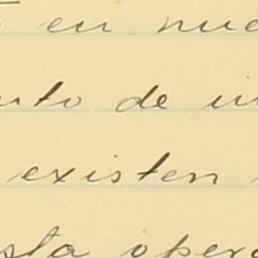 en nue
nto de in
existen
sta opera